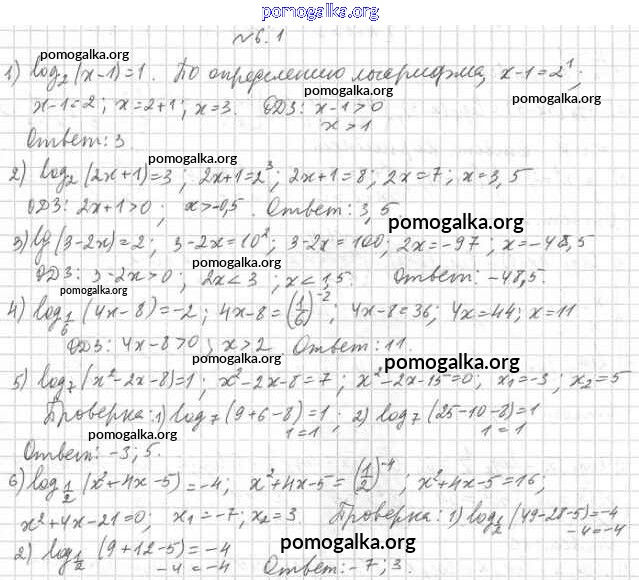 pomogalka.org
№6.1
pomogalka.org pomogalka.org
1) log₂(x-1)=1. По определению логарифма, x-1=2¹;
pomogalka.org pomogalka.org
x-1=2; x=2+1; x=3. ОДЗ: x-1>0
x>1
Ответ: 3.
pomogalka.org
2) log₂(2x+1)=3; 2x+1=2³; 2x+1=8; 2x=7; x=3,5
ОДЗ: 2x+1>0; x>-0,5. Ответ: 3,5.
pomogalka.org
3) lg(3-2x)=2; 3-2x=10²; 3-2x=100; 2x=-97; x=-48,5
pomogalka.org
ОДЗ: 3-2x>0; 2x<3; x<1,5. Ответ: -48,5.
pomogalka.org
4) log_(1/6)(4x-8)=-2; 4x-8=(1/6)⁻²; 4x-8=36; 4x=44; x=11
ОДЗ: 4x-8>0; x>2 Ответ: 11.
pomogalka.org pomogalka.org
5) log₇(x²-2x-8)=1; x²-2x-8=7; x²-2x-15=0; x₁=-3; x₂=5
Проверка: 1) log₇(9+6-8)=1; 2) log₇(25-10-8)=1
1=1 1=1
pomogalka.org
Ответ: -3; 5.
6) log_(1/2)(x²+4x-5)=-4; x²+4x-5=(1/2)⁻⁴; x²+4x-5=16;
pomogalka.org
x²+4x-21=0; x₁=-7; x₂=3. Проверка: 1) log_(1/2)(49-28-5)=-4
-4=-4
pomogalka.org
2) log_(1/2)(9+12-5)=-4
-4=-4 Ответ: -7; 3.